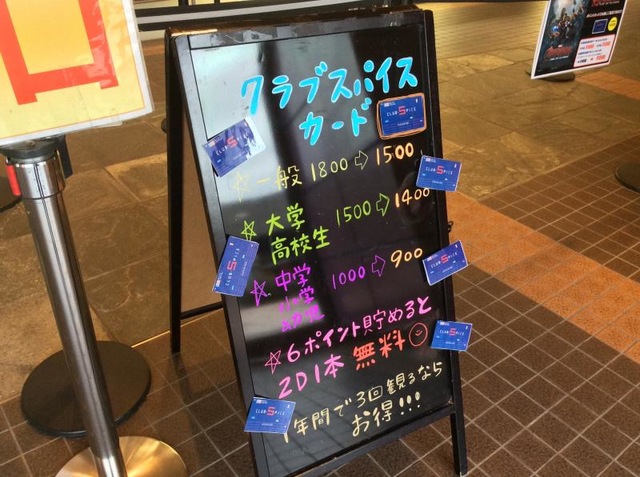 クラブスパイス
カード
CLUB SPICE
☆一般 1800⇨1500
☆大学
高校生 1500⇨1400
☆中学
小学
幼児 1000⇨900
☆6ポイント貯めると
2D1本 無料
1年間で3回観るなら
お得!!!
CLUB SPICE
CLUB SPICE
CLUB SPICE
CLUB SPICE
CLUB SPICE
CLUB SPICE